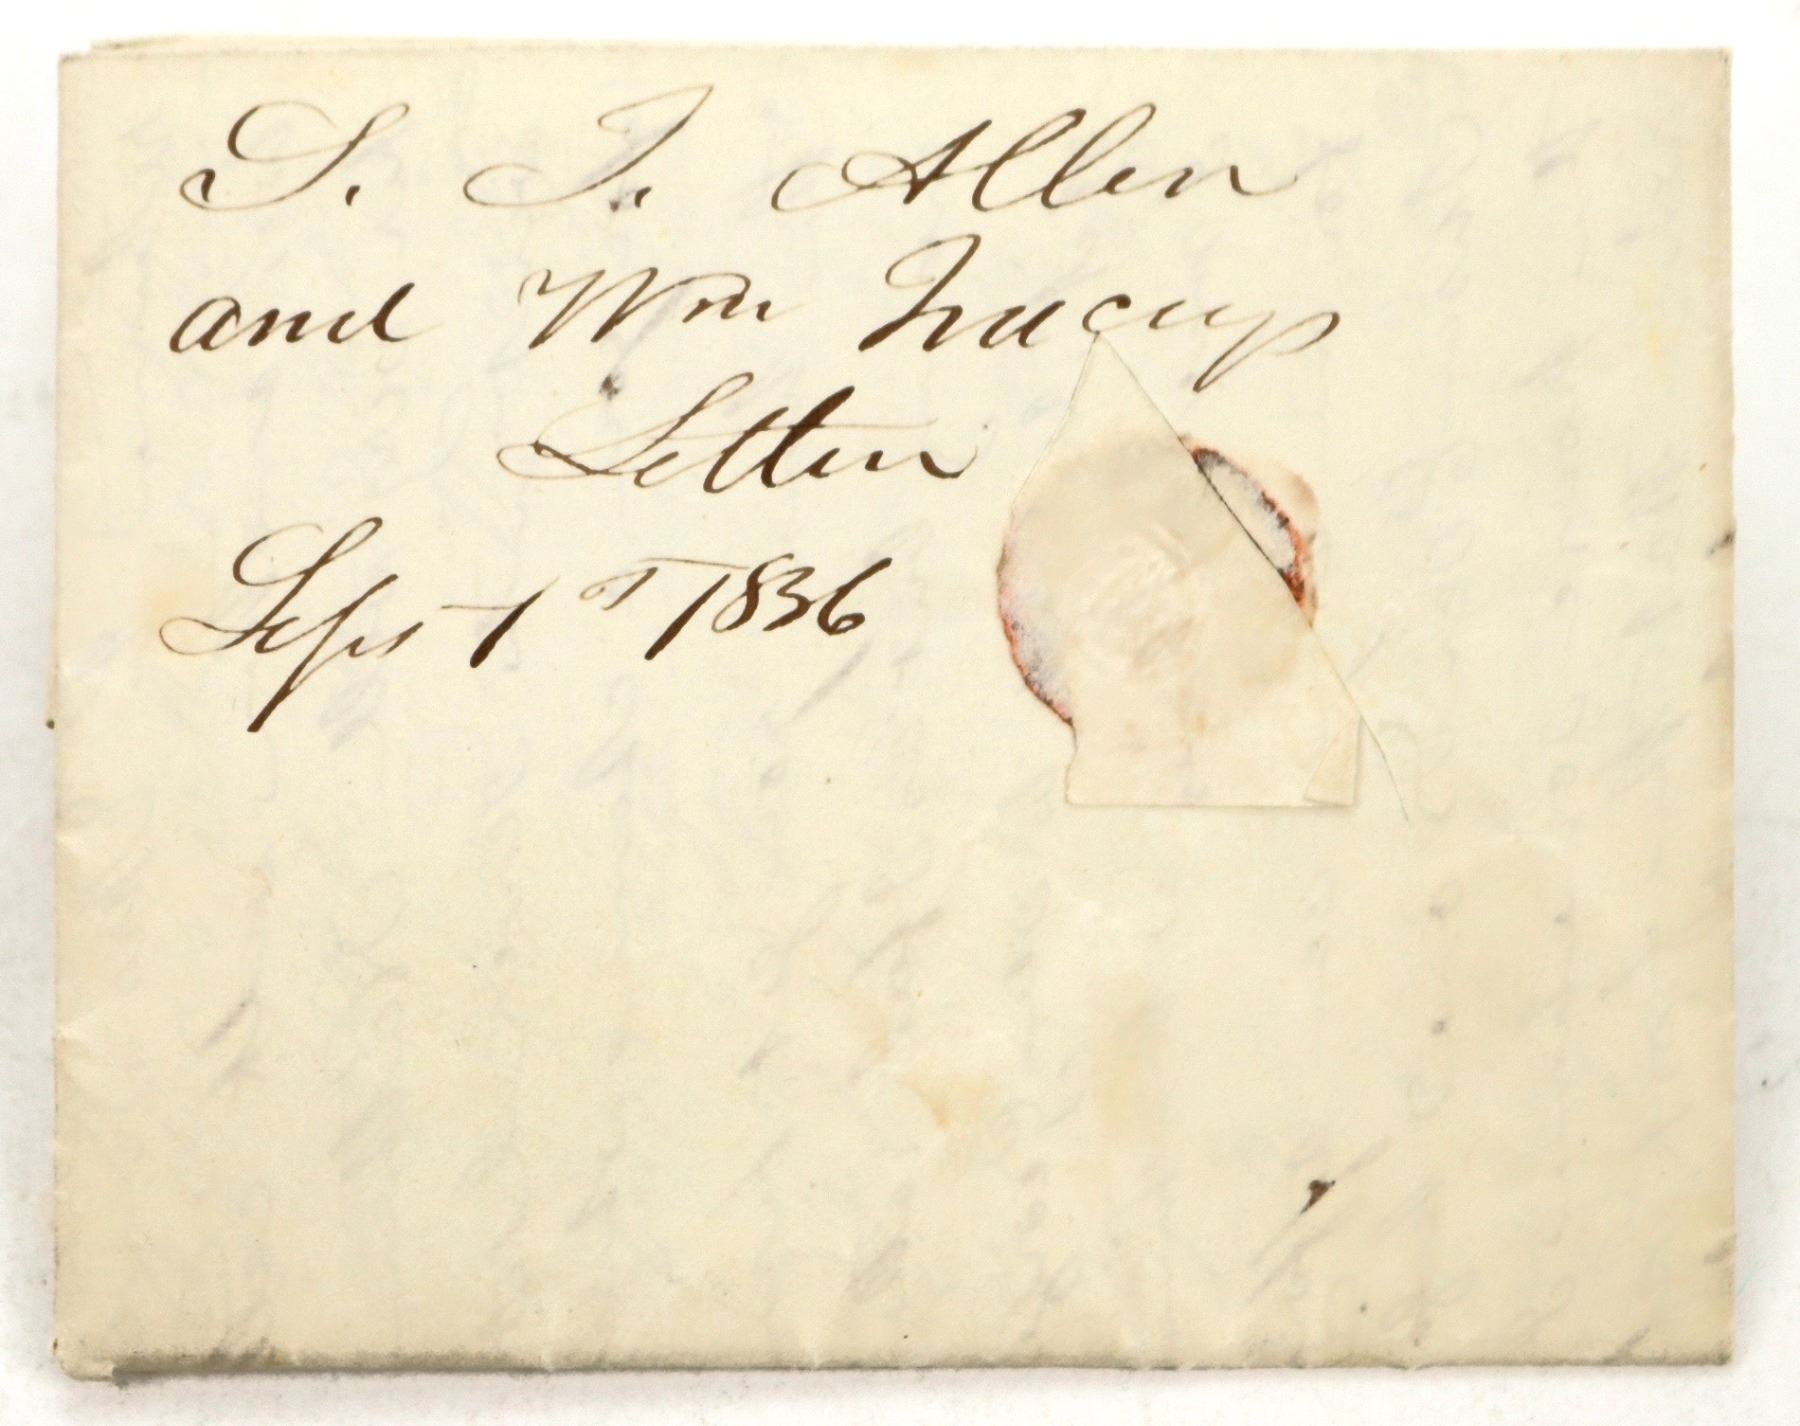 S. T. Allen
and Wm
Letter
Sept 1st 1836